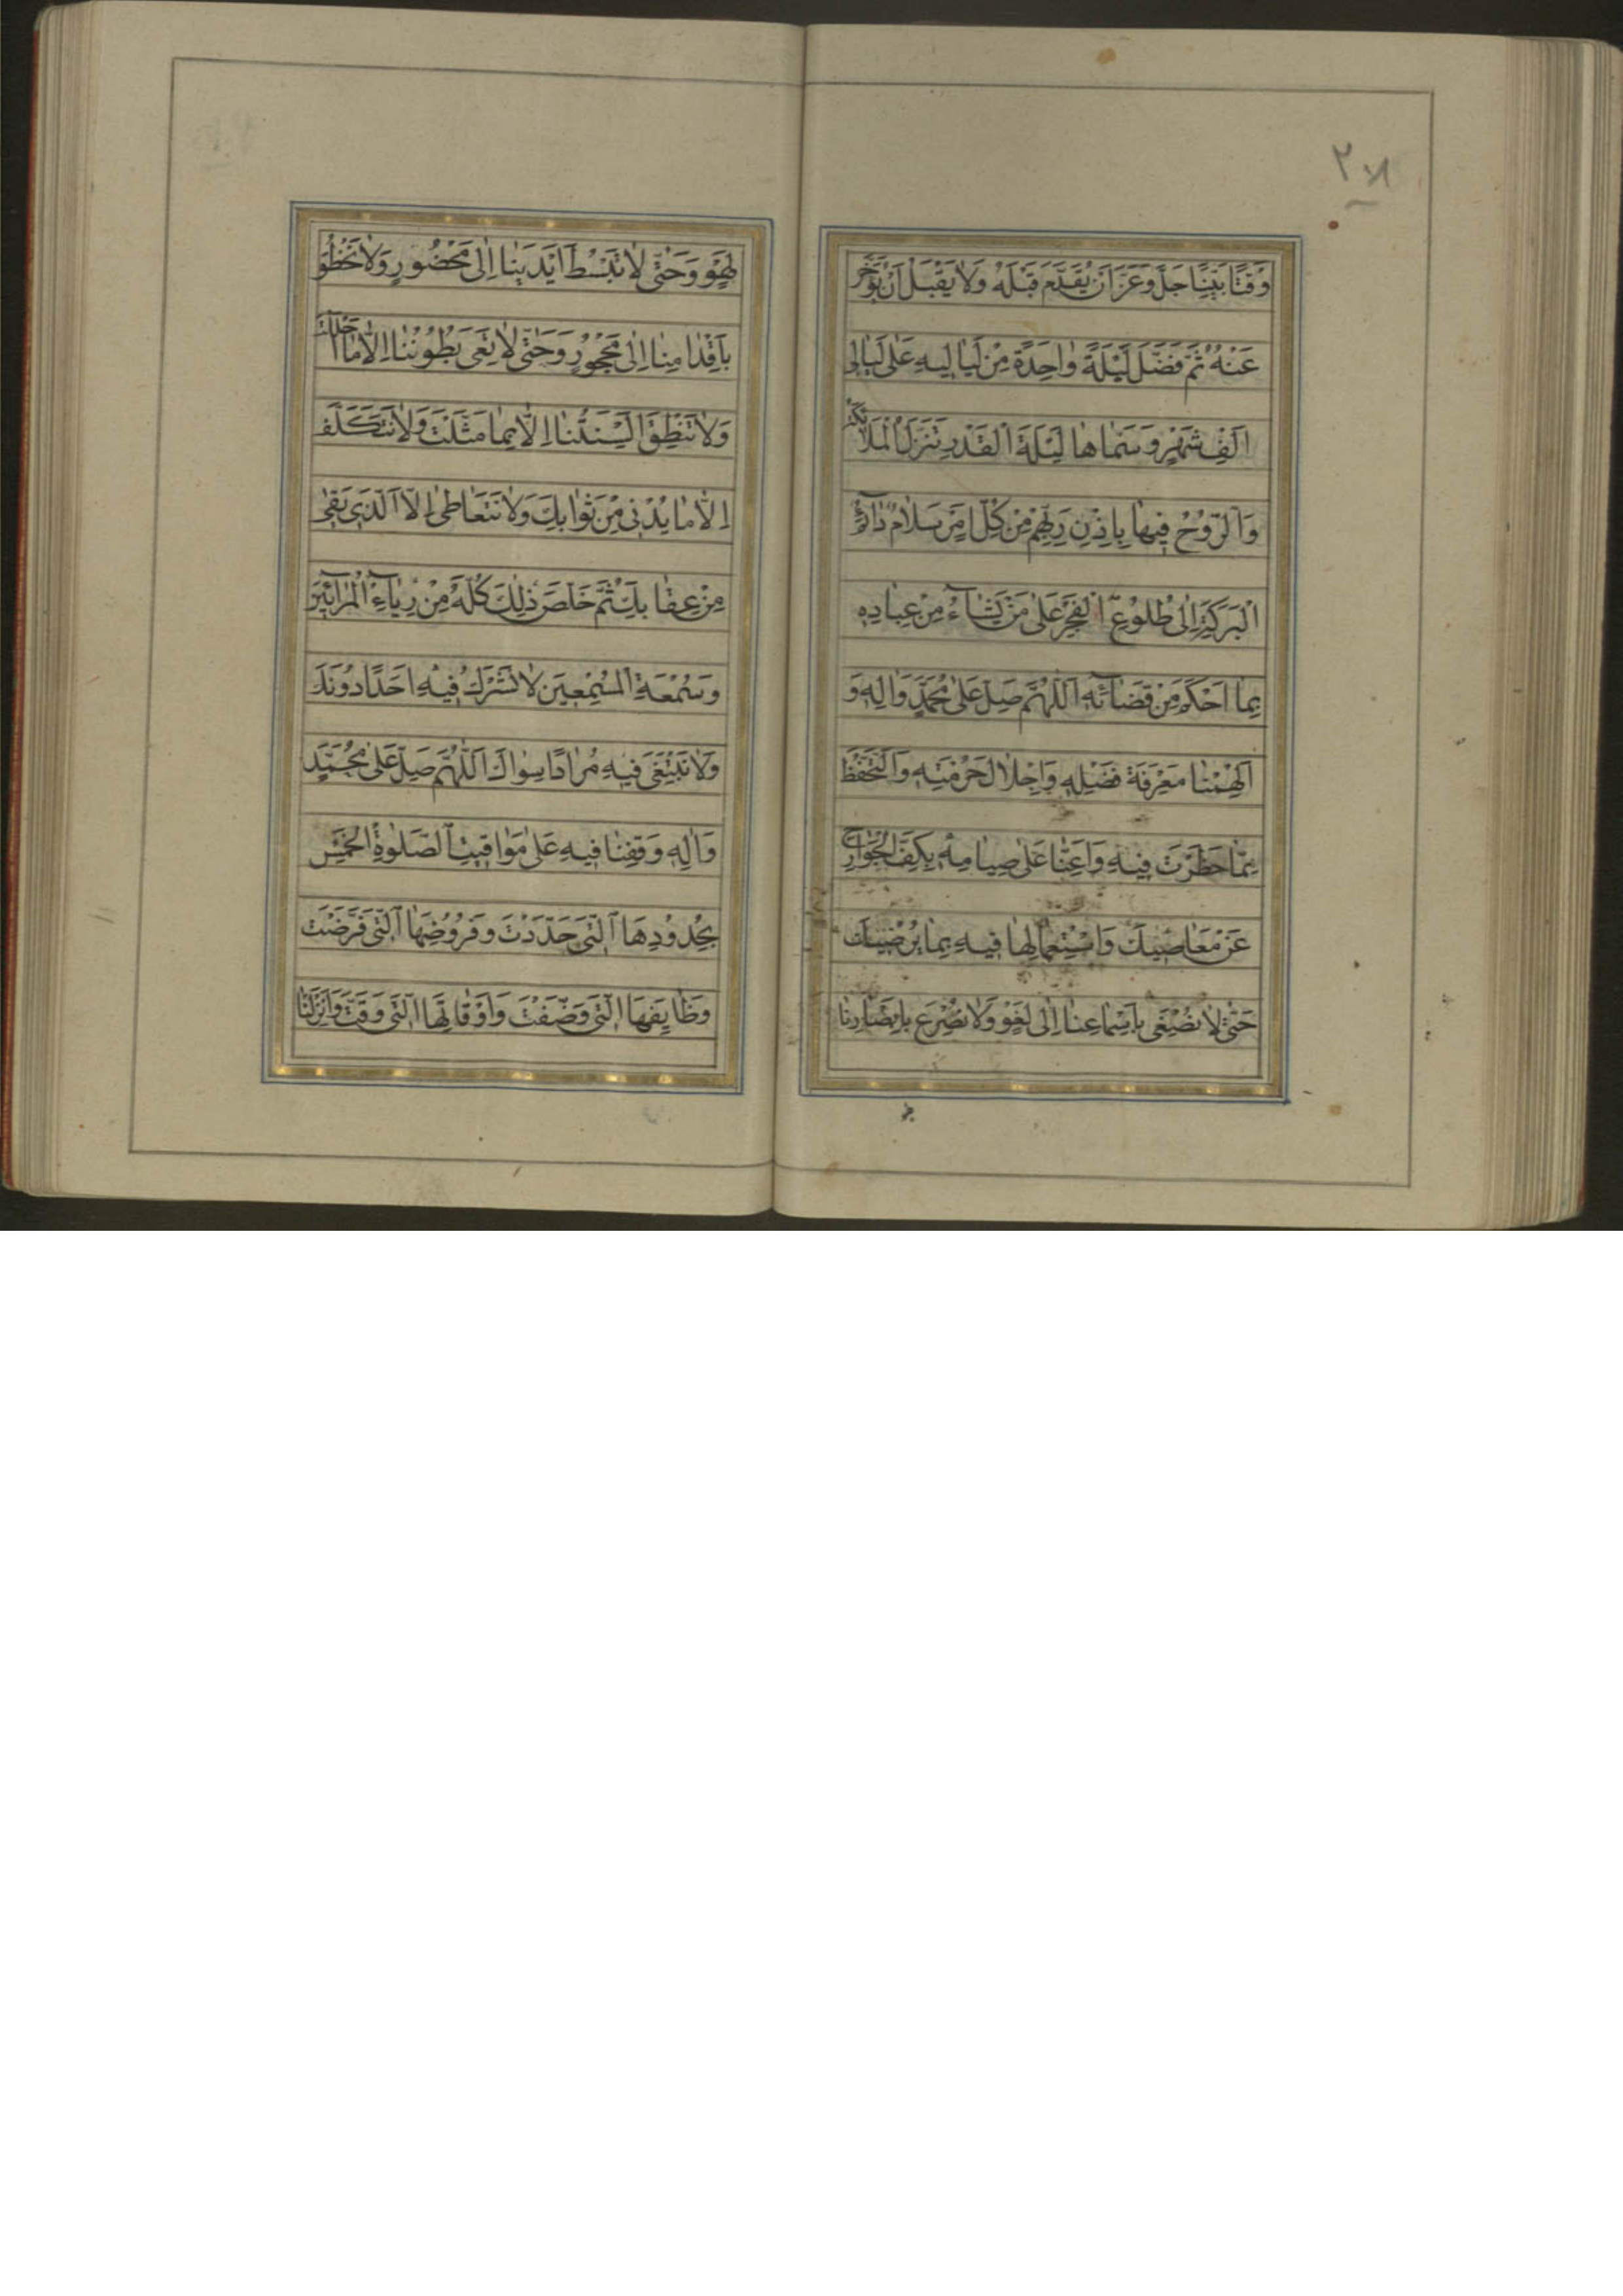 ٢٠٨
وَقْتًا بَيِّنًا جَلَّ وَعَزَّ اَنْ يُقَدَّمَ قَبْلَهُ وَلٰا يَقْبَلُ اَنْ يُؤَخَّرَ
عَنْهُ ثُمَّ فَضَّلَ لَيْلَةً وٰاحِدَةً مِنْ لَيٰالِيهِ عَلٰى لَيٰالِى
اَلْفِ شَهْرٍ وَسَمّٰاهٰا لَيْلَةَ الْقَدْرِ تَنَزَّلُ الْمَلٰائِكَةُ
وَالرُّوحُ فِيهٰا بِاِذْنِ رَبِّهِمْ مِنْ كُلِّ اَمْرٍ سَلٰامٌ دٰآئِمُ
الْبَرَكَةِ اِلٰى طُلُوعِ الْفَجْرِ عَلٰى مَنْ يَشٰآءُ مِنْ عِبٰادِهِ
بِمٰا اَحْكَمَ مِنْ قَضٰآئِهِ اَللّٰهُمَّ صَلِّ عَلٰى مُحَمَّدٍ وَاٰلِهِ وَ
اَلْهِمْنٰا مَعْرِفَةَ فَضْلِهِ وَاِجْلٰالَ حُرْمَتِهِ وَالتَّحَفُّظَ
مِمّٰا حَظَرْتَ فِيهِ وَاَعِنّٰا عَلٰى صِيٰامِهِ بِكَفِّ الْجَوٰارِحِ
عَنْ مَعٰاصِيكَ وَاسْتِعْمٰالِهٰا فِيهِ بِمٰا يُرْضِيكَ
حَتّٰى لٰا نُصْغِىَ بِاَسْمٰاعِنٰا اِلٰى لَغْوٍ وَلٰا نُسْرِعَ بِاَبْصٰارِنٰا
لِهْوٍ وَحَتّٰى لٰا نَبْسُطَ اَيْدِيَنٰا اِلٰى مَحْضُورٍ وَلٰا نَخْطُوَ
بِاَقْدٰامِنٰا اِلٰى مَحْجُورٍ وَحَتّٰى لٰا تَعِىَ بُطُونُنٰا اِلّٰا مٰا اَحْلَلْتَ
وَلٰا تَنْطِقَ اَلْسِنَتُنٰا اِلّٰا بِمٰا مَثَّلْتَ وَلٰا نَتَكَلَّفَ
اِلّٰا مٰا يُدْنِى مِنْ ثَوٰابِكَ وَلٰا نَتَعٰاطٰى اِلَّا الَّذِى يَقٖى
مِنْ عِقٰابِكَ ثُمَّ خَلِّصْ ذٰلِكَ كُلَّهُ مِنْ رِيٰآءِ الْمُرٰآئِينَ
وَسُمْعَةِ الْمُسْمِعِينَ لٰا نُشْرِكُ فِيهِ اَحَدًا دُونَكَ
وَلٰا نَبْتَغِى فِيهِ مُرٰادًا سِوٰاكَ اَللّٰهُمَّ صَلِّ عَلٰى مُحَمَّدٍ
وَاٰلِهِ وَقِفْنٰا فِيهِ عَلٰى مَوٰاقِيتِ الصَّلَوٰةِ الْخَمْسِ
بِحُدُودِهَا الَّتِى حَدَّدْتَ وَفُرُوضِهَا الَّتِى فَرَضْتَ
وَظٰايِفِهَا الَّتِى وَضَّفْتَ وَاَوْقٰاتِهَا الَّتِى وَقَّتَّ وَاَنْزِلْنٰا